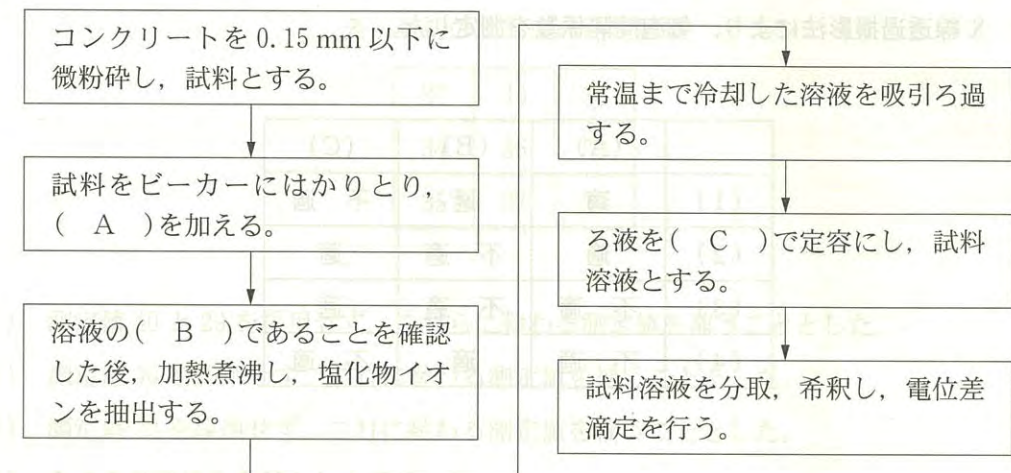 コンクリートを0.15 mm以下に
微粉砕し，試料とする。
試料をビーカーにはかりとり，
(　A　)を加える。
溶液の(　B　)であることを確認
した後，加熱煮沸し，塩化物イオ
ンを抽出する。
常温まで冷却した溶液を吸引ろ過
する。
ろ液を(　C　)で定容にし，試料
溶液とする。
試料溶液を分取，希釈し，電位差
滴定を行う。